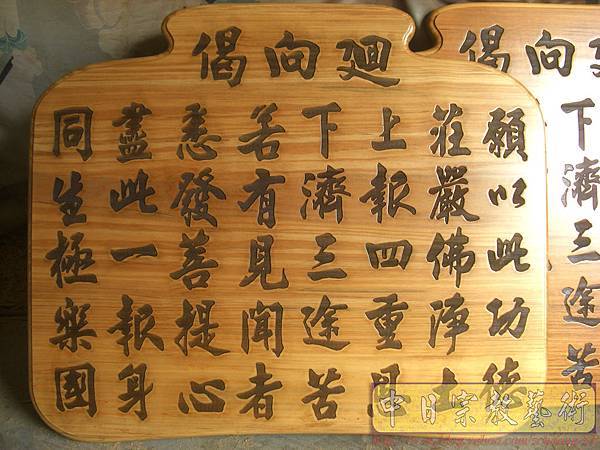 廻向偈
願以此功德
莊嚴佛淨土
上報四重恩
下濟三途苦
若有見聞者
悉發菩提心
盡此一報身
同生極樂國
向偈
下濟三途苦
中日宗教藝術